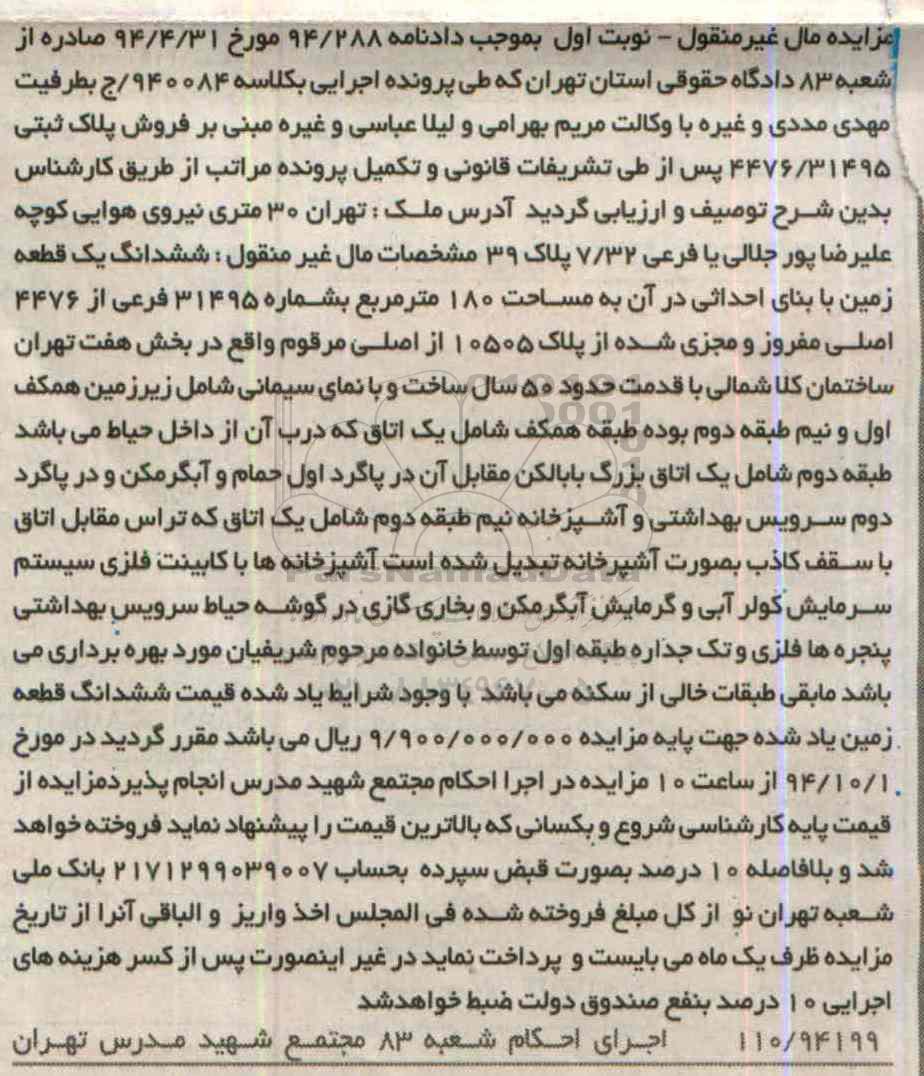 مزایده مال غیرمنقول - نوبت اول بموجب دادنامه ۹۴/۲۸۸ مورخ ۹۴/۴/۳۱ صادره از
شعبه ۸۳ دادگاه حقوقی استان تهران که طی پرونده اجرایی بکلاسه ۹۴۰۰۸۴/ج بطرفیت
مهدی مددی و غیره با وکالت مریم بهرامی و لیلا عباسی و غیره مبنی بر فروش پلاک ثبتی
۴۴۷۶/۳۱۴۹۵ پس از طی تشریفات قانونی و تکمیل پرونده مراتب از طریق کارشناس
بدین شرح توصیف و ارزیابی گردید آدرس ملک : تهران ۳۰ متری نیروی هوایی کوچه
علیرضا پور جلالی یا فرعی ۷/۳۲ پلاک ۳۹ مشخصات مال غیر منقول : ششدانگ یک قطعه
زمین با بنای احداثی در آن به مساحت ۱۸۰ مترمربع بشماره ۳۱۴۹۵ فرعی از ۴۴۷۶
اصلی مفروز و مجزی شده از پلاک ۱۰۵۰۵ از اصلی مرقوم واقع در بخش هفت تهران
ساختمان کلا شمالی با قدمت حدود ۵۰ سال ساخت و با نمای سیمانی شامل زیرزمین همکف
اول و نیم طبقه دوم بوده طبقه همکف شامل یک اتاق که درب آن از داخل حیاط می باشد
طبقه دوم شامل یک اتاق بزرگ بابالکن مقابل آن در پاگرد اول حمام و آبگرمکن و در پاگرد
دوم سرویس بهداشتی و آشپزخانه نیم طبقه دوم شامل یک اتاق که تراس مقابل اتاق
با سقف کاذب بصورت آشپرخانه تبدیل شده است آشپزخانه ها با کابینت فلزی سیستم
سرمایش کولر آبی و گرمایش آبگرمکن و بخاری گازی در گوشه حیاط سرویس بهداشتی
پنجره ها فلزی و تک جداره طبقه اول توسط خانواده مرحوم شریفیان مورد بهره برداری می
باشد مابقی طبقات خالی از سکنه می باشند با وجود شرایط یاد شده قیمت ششدانگ قطعه
زمین یاد شده جهت پایه مزایده ۹/۹۰۰/۰۰۰/۰۰۰ ریال می باشد مقرر گردید در مورخ
۹۴/۱۰/۱ از ساعت ۱۰ مزایده در اجرا احکام مجتمع شهید مدرس انجام پذیردمزایده از
قیمت پایه کارشناسی شروع و بکسانی که بالاترین قیمت را پیشنهاد نماید فروخته خواهد
شد و بلافاصله ۱۰ درصد بصورت قبض سپرده بحساب ۲۱۷۱۲۹۹۰۳۹۰۰۷ بانک ملی
شعبه تهران نو از کل مبلغ فروخته شده فی المجلس اخذ واریز و الباقی آنرا از تاریخ
مزایده ظرف یک ماه می بایست و پرداخت نماید در غیر اینصورت پس از کسر هزینه های
اجرایی ۱۰ درصد بنفع صندوق دولت ضبط خواهدشد
۱۱۰/۹۴۱۹۹ اجرای احکام شعبه ۸۳ مجتمع شهید مدرس تهران
ParsNamadData